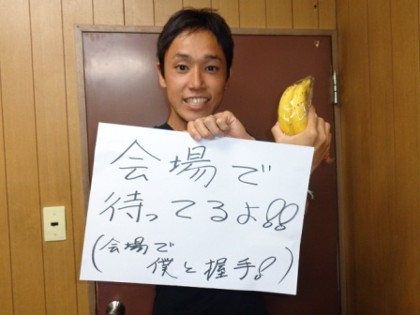 会場で
待ってるよ!!
(会場で
僕と握手!)